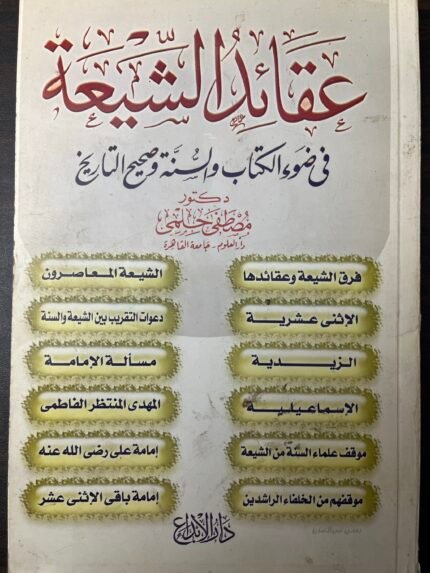 عقائد الشيعة
في ضوء الكتاب والسنة وصحيح التاريخ
دكتور
مصطفى حلمي
دار العلوم - جامعة القاهرة
فرق الشيعة وعقائدها
الشيعة المعاصرون
الإثنى عشرية
دعوات التقريب بين الشيعة والسنة
الزيدية
مسألة الإمامة
الإسماعيلية
المهدى المنتظر الفاطمى
موقف علماء السنة من الشيعة
إمامة على رضى الله عنه
موقفهم من الخلفاء الراشدين
إمامة باقى الإثنى عشر
دار الإبداع